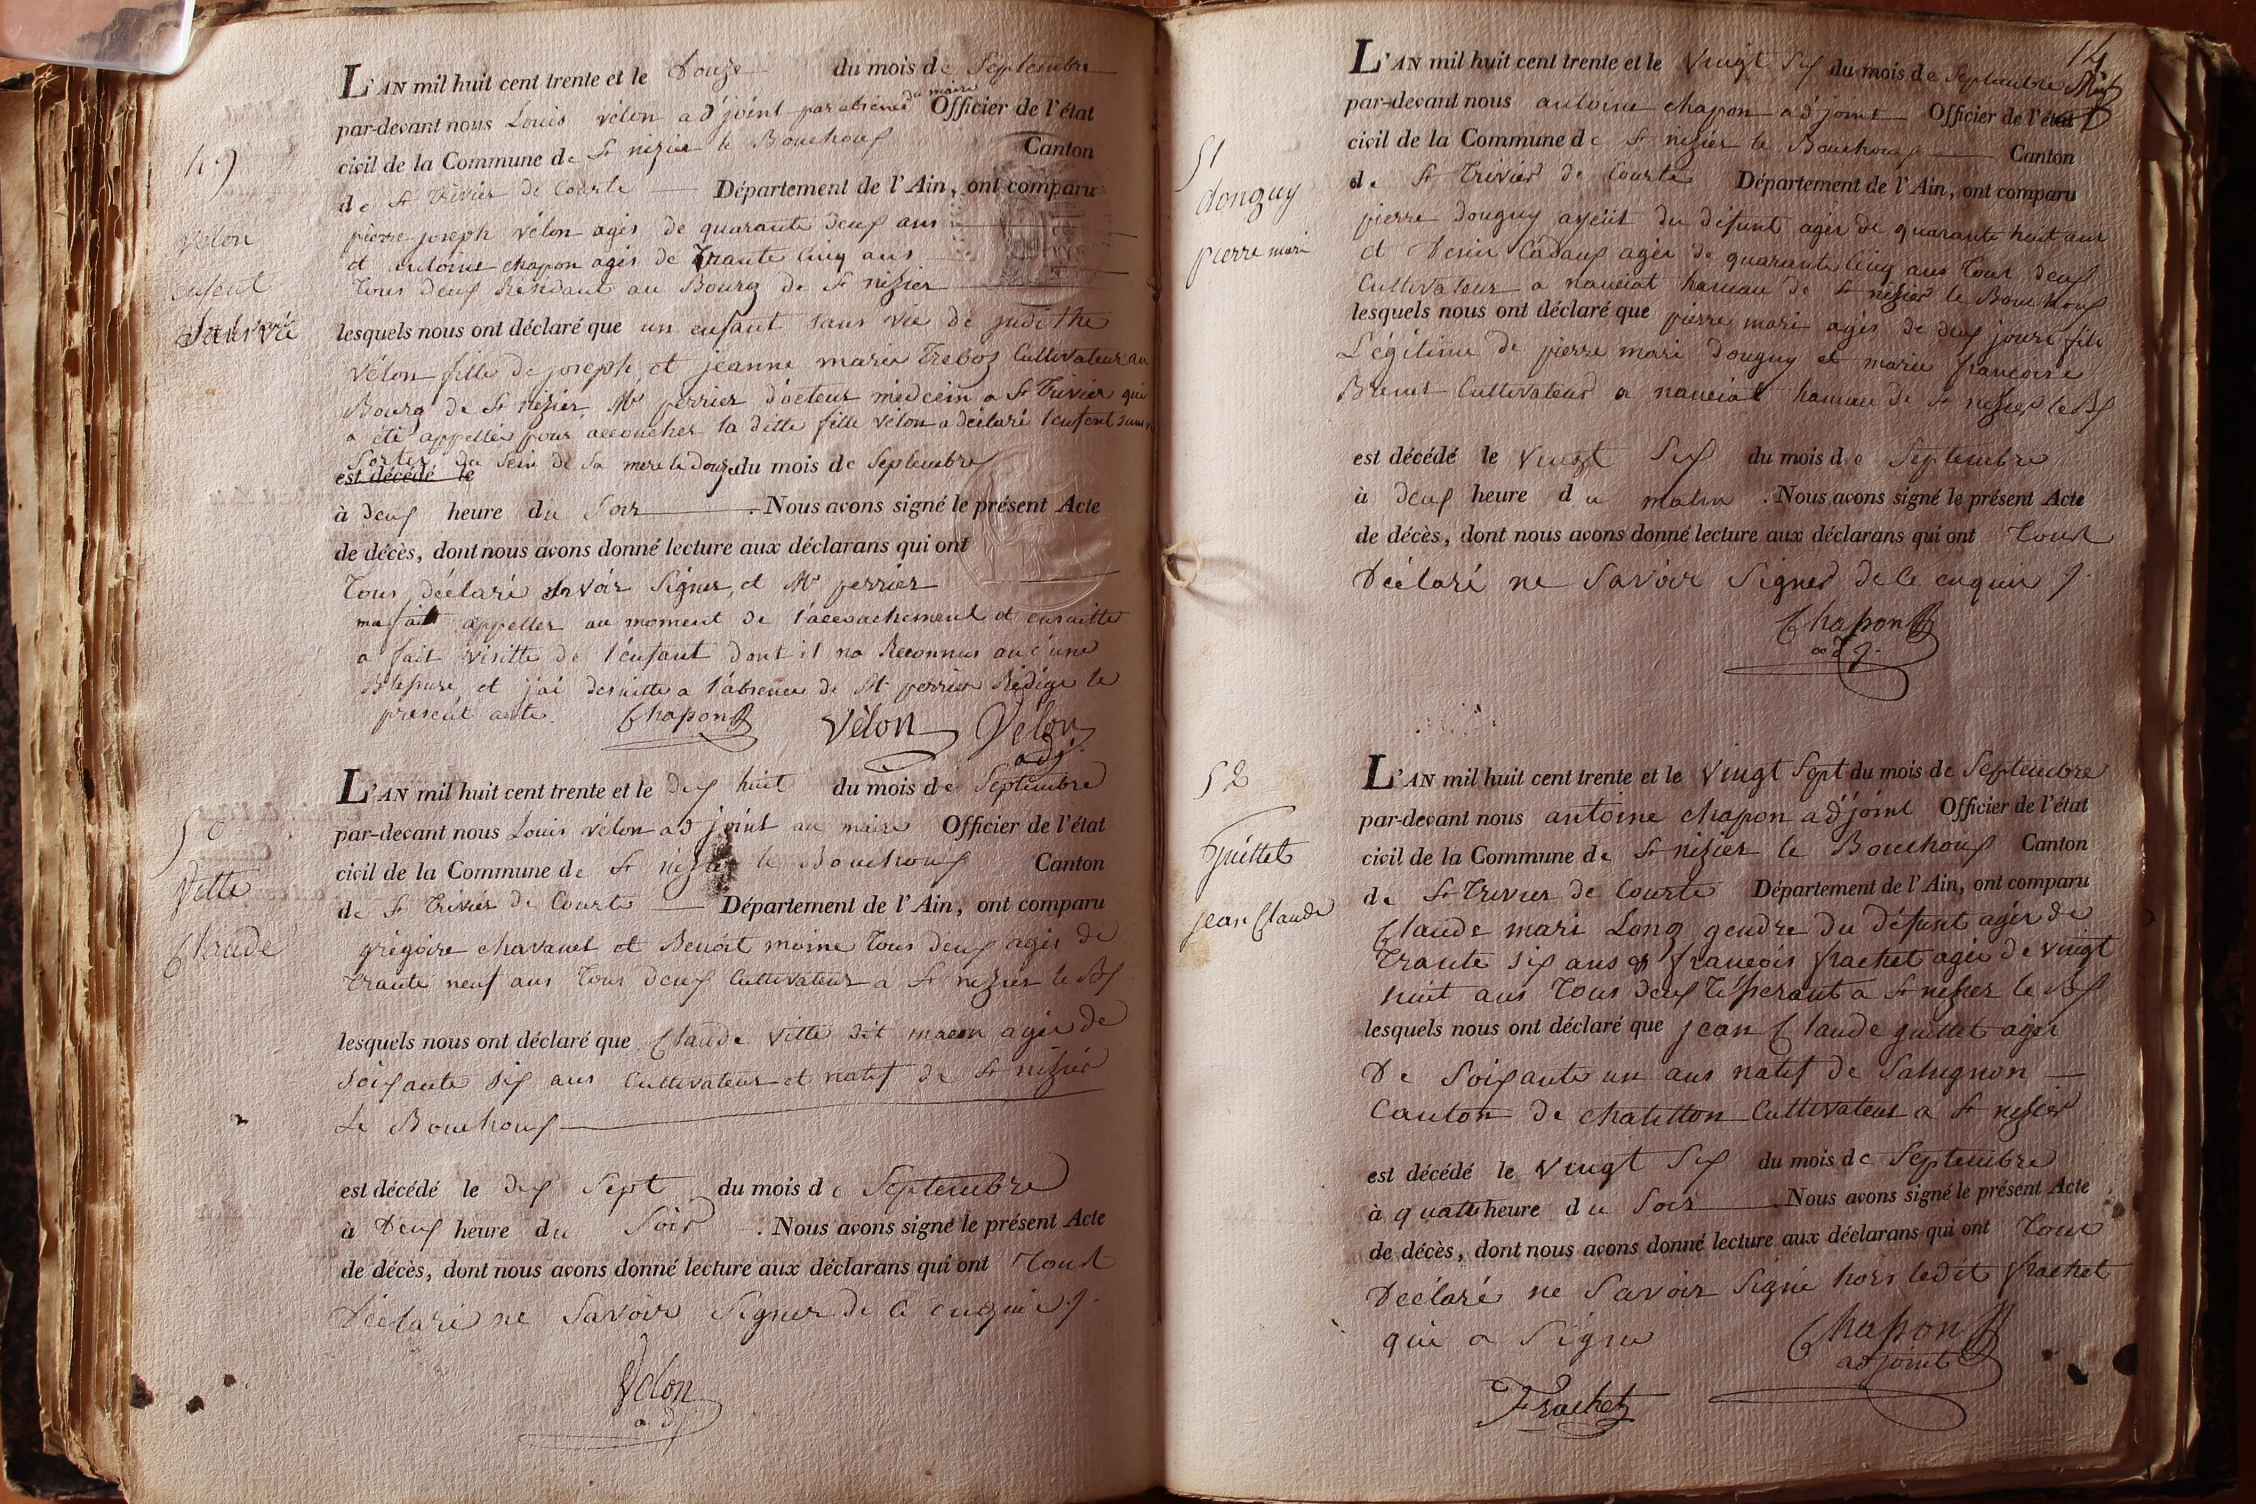 49
vélon
enfent
L'AN mil huit cent trente et le Douze du mois de Septembre
par-devant nous Louis vélon ad'joint par absence du maire Officier de l'état
civil de la Commune de St nizier le Bouchoux Canton
de St Trivier de Courte Département de l'Ain, ont comparu
pierre joseph vélon agés de quarante deux ans
et antoine chapon agés de Trante Cinq ans
Tous deux Résidant au Bourg de St nizier
lesquels nous ont déclaré que un enfant sans vie de judithe
vélon fille de joseph et jeanne marie Treboz Cultivateur au
Bourg de St nizier Mr perrier docteur médcein a St Trivier qui
a été appellés pour accoucher la ditte fille vélon a déclaré l'enfent
Sorter du sein de sa mere le Douze du mois de Septembre
est décédé le
à deux heure du Soir . Nous avons signé le présent Acte
de décès, dont nous avons donné lecture aux déclarans qui ont
Tous déclaré Savoir Signer, et Mr perrier
ma fait appeller au moment de l'accouchement et ensuitte
a fait visitte de l'enfant dont il na Reconnus auc'une
Blessure, et j'ai desuitte a l'absence de Mr perrier Rédigé le
présent acte. Chapon Vélon Velon
adj.
50
Vitte
Claude
L'AN mil huit cent trente et le dix huit du mois de Septembre
par-devant nous Louis vélon ad joint au maire Officier de l'état
civil de la Commune de St nizier le Bouchoux Canton
de St Trivier de Courte Département de l'Ain, ont comparu
grégoire chavanet et Benoit moine Tous deux agés de
Trante neuf ans Tous deux Cultivateur a St nizier le Bx
lesquels nous ont déclaré que Claude vitte dit macon agés de
Soixante Six ans Cultivateur et natif de St nizier
Le Bouchoux
est décédé le dix Sept du mois de Septembre
à Deux heure du Soir . Nous avons signé le présent Acte
de décès, dont nous avons donné lecture aux déclarans qui ont Tout
Déclaré ne Savoir Signer de ce enquis
Vélon
adj
14
51
donguy
pierre mari
L'AN mil huit cent trente et le Vingt Six du mois de Septembre
par-devant nous antoine chapon ad'joint Officier de l'état
civil de la Commune de St nizier le Bouchoux Canton
de St Trivier de Courte Département de l'Ain, ont comparu
pierre donguy ayeüt du défunt agés de quarante huit ans
et Denis Cadaux agés de quarante Cinq ans Tout deux
Cultivateur a nanciat hameau de St nizier le Bouchoux
lesquels nous ont déclaré que pierre mari agés de deux jours fils
Légitime de pierre mari donguy et marie francoise
Brunet Cultivateur a nanciat hameau de St nizier le Bx
est décédé le Vingt Six du mois de Septembre
à deux heure du matin . Nous avons signé le présent Acte
de décès, dont nous avons donné lecture aux déclarans qui ont Tout
Déclaré ne Savoir Signer de ce enquis
Chapon
adj.
52
guillet
jean Claude
L'AN mil huit cent trente et le Vingt Sept du mois de Septembre
par-devant nous antoine chapon ad'joint Officier de l'état
civil de la Commune de St nizier le Bouchoux Canton
de St Trivier de Courte Département de l'Ain, ont comparu
Claude mari Long gendre du défunt agés de
Trante Six ans et francois frachet agés de vingt
huit ans Tous deux a St nizier le Bx
lesquels nous ont déclaré que jean Claude guillet agés
De Soixante un ans natif de Salugnon
Canton de chatitton Cultivateur a St nizier
est décédé le Vingt Six du mois de Septembre
à quatre heure du Soir Nous avons signé le présent Acte
de décès, dont nous avons donné lecture aux déclarans qui ont Tous
Déclaré ne Savoir Signé hors ledit frachet
qui a Signé
Chapon
adjoint
Frachet